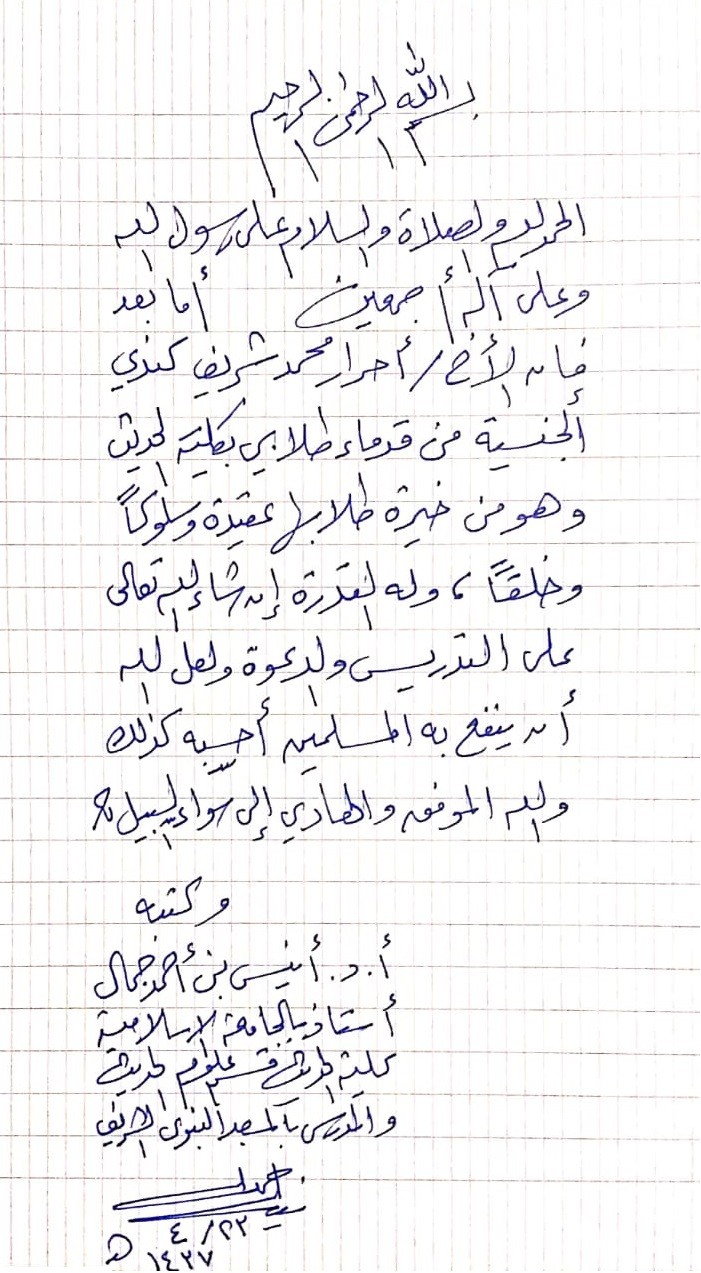 بسم الله الرحمن الرحيم
الحمد لله والصلاة والسلام على رسول الله
وعلى آله أجمعين أما بعد
فإن الأخ / أحرار محمد شريف كندي
الجنسية من قدماء طلابي بكلية الحديث
وهو من خيرة طلابها عقيدة وسلوكاً
وخلقاً، وله القدرة إن شاء الله تعالى
على التدريس والدعوة ولعل الله
أن ينفع به المسلمين أحسبه كذلك
والله الموفق والهادي إلى سواء السبيل
وكتبه
أ.د. أنيس بن أحمد جمال
أستاذ بالجامعة الإسلامية
كلية الحديث قسم علوم الحديث
والمدرس بالمسجد النبوي الشريف
٢٣ / ٤
١٤٣٧ هـ